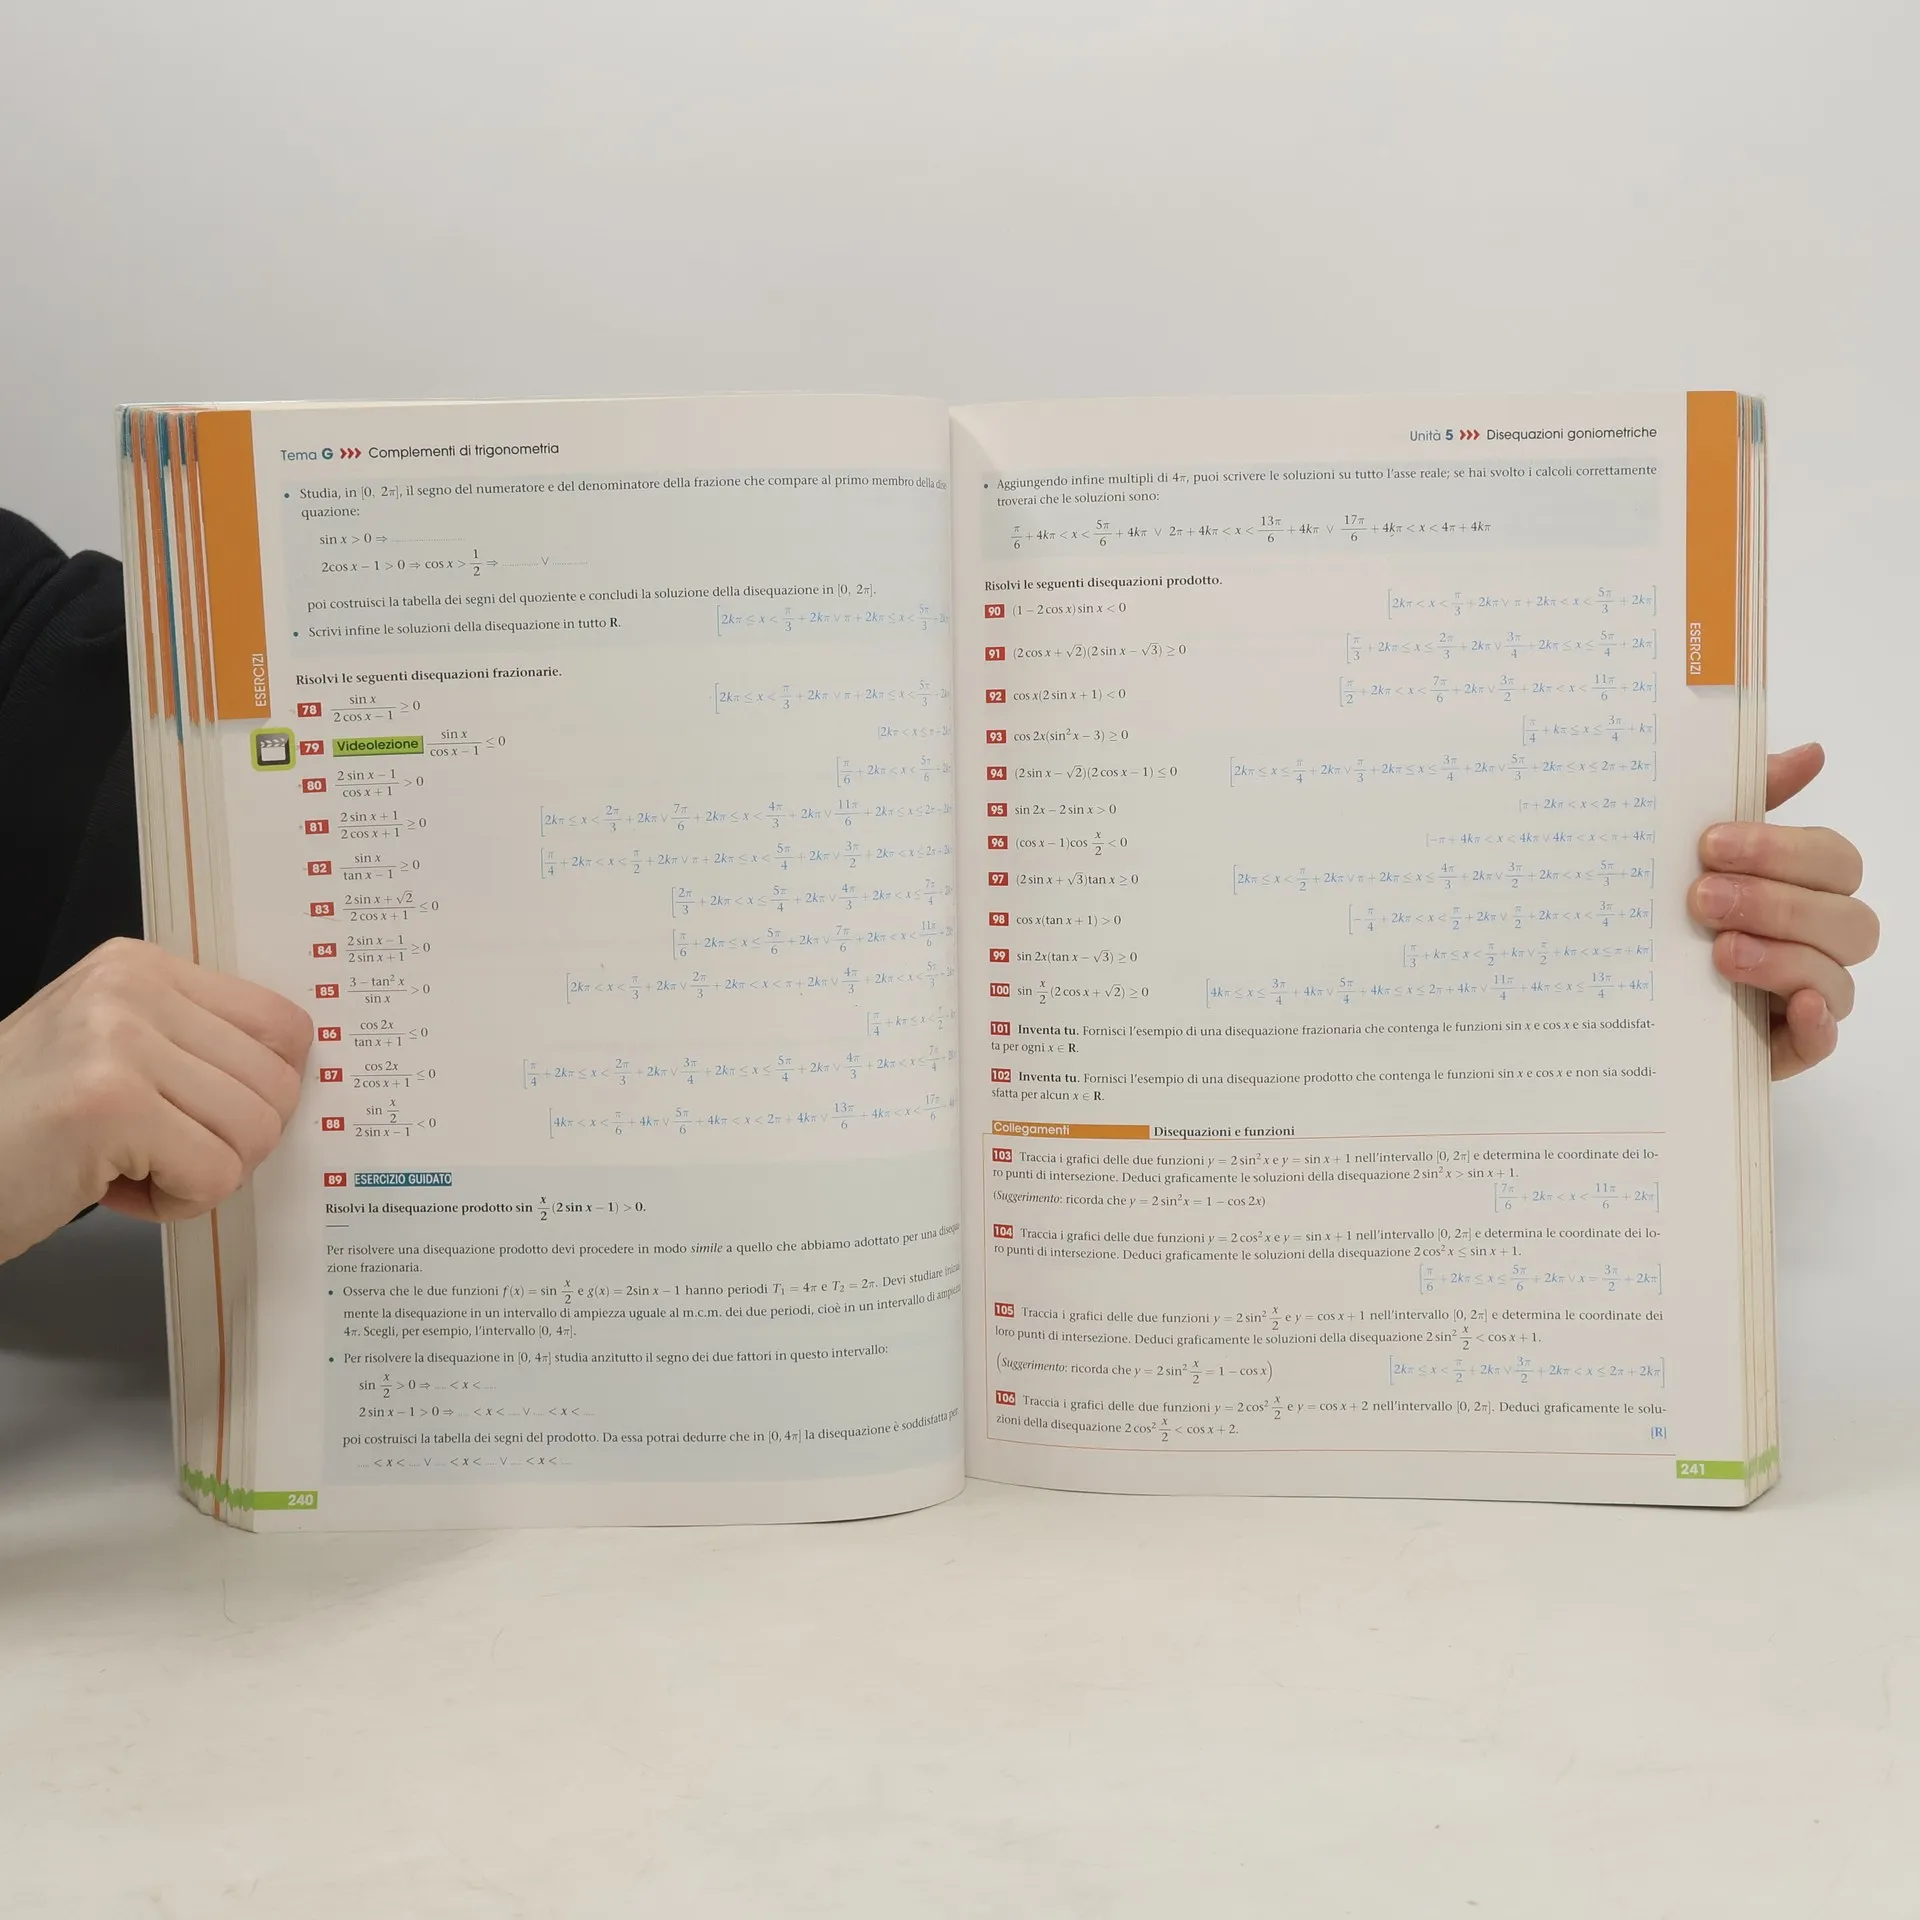 Tema G >>> Complementi di trigonometria
• Studia, in [0, 2π], il segno del numeratore e del denominatore della frazione che compare al primo membro della dise
quazione:
sin x > 0 ⇒ ............
2cos x − 1 > 0 ⇒ cos x > 1/2 ⇒ ............ ∨ ............
poi costruisci la tabella dei segni del quoziente e concludi la soluzione della disequazione in [0, 2π].
• Scrivi infine le soluzioni della disequazione in tutto R. [2kπ ≤ x < π/3 + 2kπ ∨ π + 2kπ ≤ x < 5π/3 + 2kπ
ESERCIZI
Risolvi le seguenti disequazioni frazionarie.
78 sin x / (2 cos x − 1) ≥ 0 [2kπ ≤ x < π/3 + 2kπ ∨ π + 2kπ ≤ x < 5π/3
79 Videolezione sin x / (cos x − 1) ≤ 0 [2kπ < x ≤ π + 2kπ
80 (2 sin x − 1) / (cos x + 1) > 0 [π/6 + 2kπ < x < 5π/6
81 (2 sin x + 1) / (2 cos x + 1) ≥ 0 [2kπ ≤ x < 2π/3 + 2kπ ∨ 7π/6 + 2kπ ≤ x < 4π/3 + 2kπ ∨ 11π/6 + 2kπ ≤ x ≤ 2π + 2kπ
82 sin x / (tan x − 1) ≥ 0 [π/4 + 2kπ < x < π/2 + 2kπ ∨ π + 2kπ ≤ x < 5π/4 + 2kπ ∨ 3π/2 + 2kπ < x ≤ 2π + 2kπ
83 (2 sin x + √2) / (2 cos x + 1) ≤ 0 [2π/3 + 2kπ < x ≤ 5π/4 + 2kπ ∨ 4π/3 + 2kπ < x ≤ 7π/4
84 (2 sin x − 1) / (2 sin x + 1) ≥ 0 [π/6 + 2kπ ≤ x ≤ 5π/6 + 2kπ ∨ 7π/6 + 2kπ < x < 11π/6
85 (3 − tan² x) / sin x > 0 [2kπ < x < π/3 + 2kπ ∨ 2π/3 + 2kπ < x < π + 2kπ ∨ 4π/3 + 2kπ < x < 5π/3
86 cos 2x / (tan x + 1) ≤ 0 [π/4 + kπ ≤ x < π/2
87 cos 2x / (2 cos x + 1) ≤ 0 [π/4 + 2kπ ≤ x < 2π/3 + 2kπ ∨ 3π/4 + 2kπ ≤ x ≤ 5π/4 + 2kπ ∨ 4π/3 + 2kπ < x ≤ 7π/4
88 sin x/2 / (2 sin x − 1) < 0 [4kπ < x < π/6 + 4kπ ∨ 5π/6 + 4kπ < x < 2π + 4kπ ∨ 13π/6 + 4kπ < x < 17π/6
89 ESERCIZIO GUIDATO
Risolvi la disequazione prodotto sin x/2 (2 sin x − 1) > 0.
Per risolvere una disequazione prodotto devi procedere in modo simile a quello che abbiamo adottato per una disequa
zione frazionaria.
• Osserva che le due funzioni f(x) = sin x/2 e g(x) = 2sin x − 1 hanno periodi T₁ = 4π e T₂ = 2π. Devi studiare inizial
mente la disequazione in un intervallo di ampiezza uguale al m.c.m. dei due periodi, cioè in un intervallo di ampiezza
4π. Scegli, per esempio, l'intervallo [0, 4π].
• Per risolvere la disequazione in [0, 4π] studia anzitutto il segno dei due fattori in questo intervallo:
sin x/2 > 0 ⇒ .... < x < ....
2 sin x − 1 > 0 ⇒ .... < x < .... ∨ .... < x < ....
poi costruisci la tabella dei segni del prodotto. Da essa potrai dedurre che in [0, 4π] la disequazione è soddisfatta per
.... < x < .... ∨ .... < x < .... ∨ .... < x < ....
240
Unità 5 >>> Disequazioni goniometriche
• Aggiungendo infine multipli di 4π, puoi scrivere le soluzioni su tutto l'asse reale; se hai svolto i calcoli correttamente
troverai che le soluzioni sono:
π/6 + 4kπ < x < 5π/6 + 4kπ ∨ 2π + 4kπ < x < 13π/6 + 4kπ ∨ 17π/6 + 4kπ < x < 4π + 4kπ
Risolvi le seguenti disequazioni prodotto.
90 (1 − 2 cos x) sin x < 0 [2kπ < x < π/3 + 2kπ ∨ π + 2kπ < x < 5π/3 + 2kπ]
91 (2 cos x + √2)(2 sin x − √3) ≥ 0 [π/3 + 2kπ ≤ x ≤ 2π/3 + 2kπ ∨ 3π/4 + 2kπ ≤ x ≤ 5π/4 + 2kπ]
92 cos x(2 sin x + 1) < 0 [π/2 + 2kπ < x < 7π/6 + 2kπ ∨ 3π/2 + 2kπ < x < 11π/6 + 2kπ]
93 cos 2x(sin² x − 3) ≥ 0 [π/4 + kπ ≤ x ≤ 3π/4 + kπ]
94 (2 sin x − √2)(2 cos x − 1) ≤ 0 [2kπ ≤ x ≤ π/4 + 2kπ ∨ π/3 + 2kπ ≤ x ≤ 3π/4 + 2kπ ∨ 5π/3 + 2kπ ≤ x ≤ 2π + 2kπ]
95 sin 2x − 2 sin x > 0 [π + 2kπ < x < 2π + 2kπ]
96 (cos x − 1)cos x/2 < 0 [−π + 4kπ < x < 4kπ ∨ 4kπ < x < π + 4kπ]
97 (2 sin x + √3) tan x ≥ 0 [2kπ ≤ x < π/2 + 2kπ ∨ π + 2kπ ≤ x ≤ 4π/3 + 2kπ ∨ 3π/2 + 2kπ < x ≤ 5π/3 + 2kπ]
98 cos x(tan x + 1) > 0 [−π/4 + 2kπ < x < π/2 + 2kπ ∨ π/2 + 2kπ < x < 3π/4 + 2kπ]
99 sin 2x(tan x − √3) ≥ 0 [π/3 + kπ ≤ x < π/2 + kπ ∨ π/2 + kπ < x ≤ π + kπ]
100 sin x/2 (2 cos x + √2) ≥ 0 [4kπ ≤ x ≤ 3π/4 + 4kπ ∨ 5π/4 + 4kπ ≤ x ≤ 2π + 4kπ ∨ 11π/4 + 4kπ ≤ x ≤ 13π/4 + 4kπ]
101 Inventa tu. Fornisci l'esempio di una disequazione frazionaria che contenga le funzioni sin x e cos x e sia soddisfat-
ta per ogni x ∈ R.
102 Inventa tu. Fornisci l'esempio di una disequazione prodotto che contenga le funzioni sin x e cos x e non sia soddi-
sfatta per alcun x ∈ R.
ESERCIZI
Collegamenti Disequazioni e funzioni
103 Traccia i grafici delle due funzioni y = 2 sin² x e y = sin x + 1 nell'intervallo [0, 2π] e determina le coordinate dei lo-
ro punti di intersezione. Deduci graficamente le soluzioni della disequazione 2 sin² x > sin x + 1.
(Suggerimento: ricorda che y = 2 sin² x = 1 − cos 2x) [7π/6 + 2kπ < x < 11π/6 + 2kπ]
104 Traccia i grafici delle due funzioni y = 2 cos² x e y = sin x + 1 nell'intervallo [0, 2π] e determina le coordinate dei lo-
ro punti di intersezione. Deduci graficamente le soluzioni della disequazione 2 cos² x ≤ sin x + 1.
[π/6 + 2kπ ≤ x ≤ 5π/6 + 2kπ ∨ x = 3π/2 + 2kπ]
105 Traccia i grafici delle due funzioni y = 2 sin² x/2 e y = cos x + 1 nell'intervallo [0, 2π] e determina le coordinate dei
loro punti di intersezione. Deduci graficamente le soluzioni della disequazione 2 sin² x/2 < cos x + 1.
(Suggerimento: ricorda che y = 2 sin² x/2 = 1 − cos x) [2kπ ≤ x < π/2 + 2kπ ∨ 3π/2 + 2kπ < x ≤ 2π + 2kπ]
106 Traccia i grafici delle due funzioni y = 2 cos² x/2 e y = cos x + 2 nell'intervallo [0, 2π]. Deduci graficamente le solu-
zioni della disequazione 2 cos² x/2 < cos x + 2. [R]
241